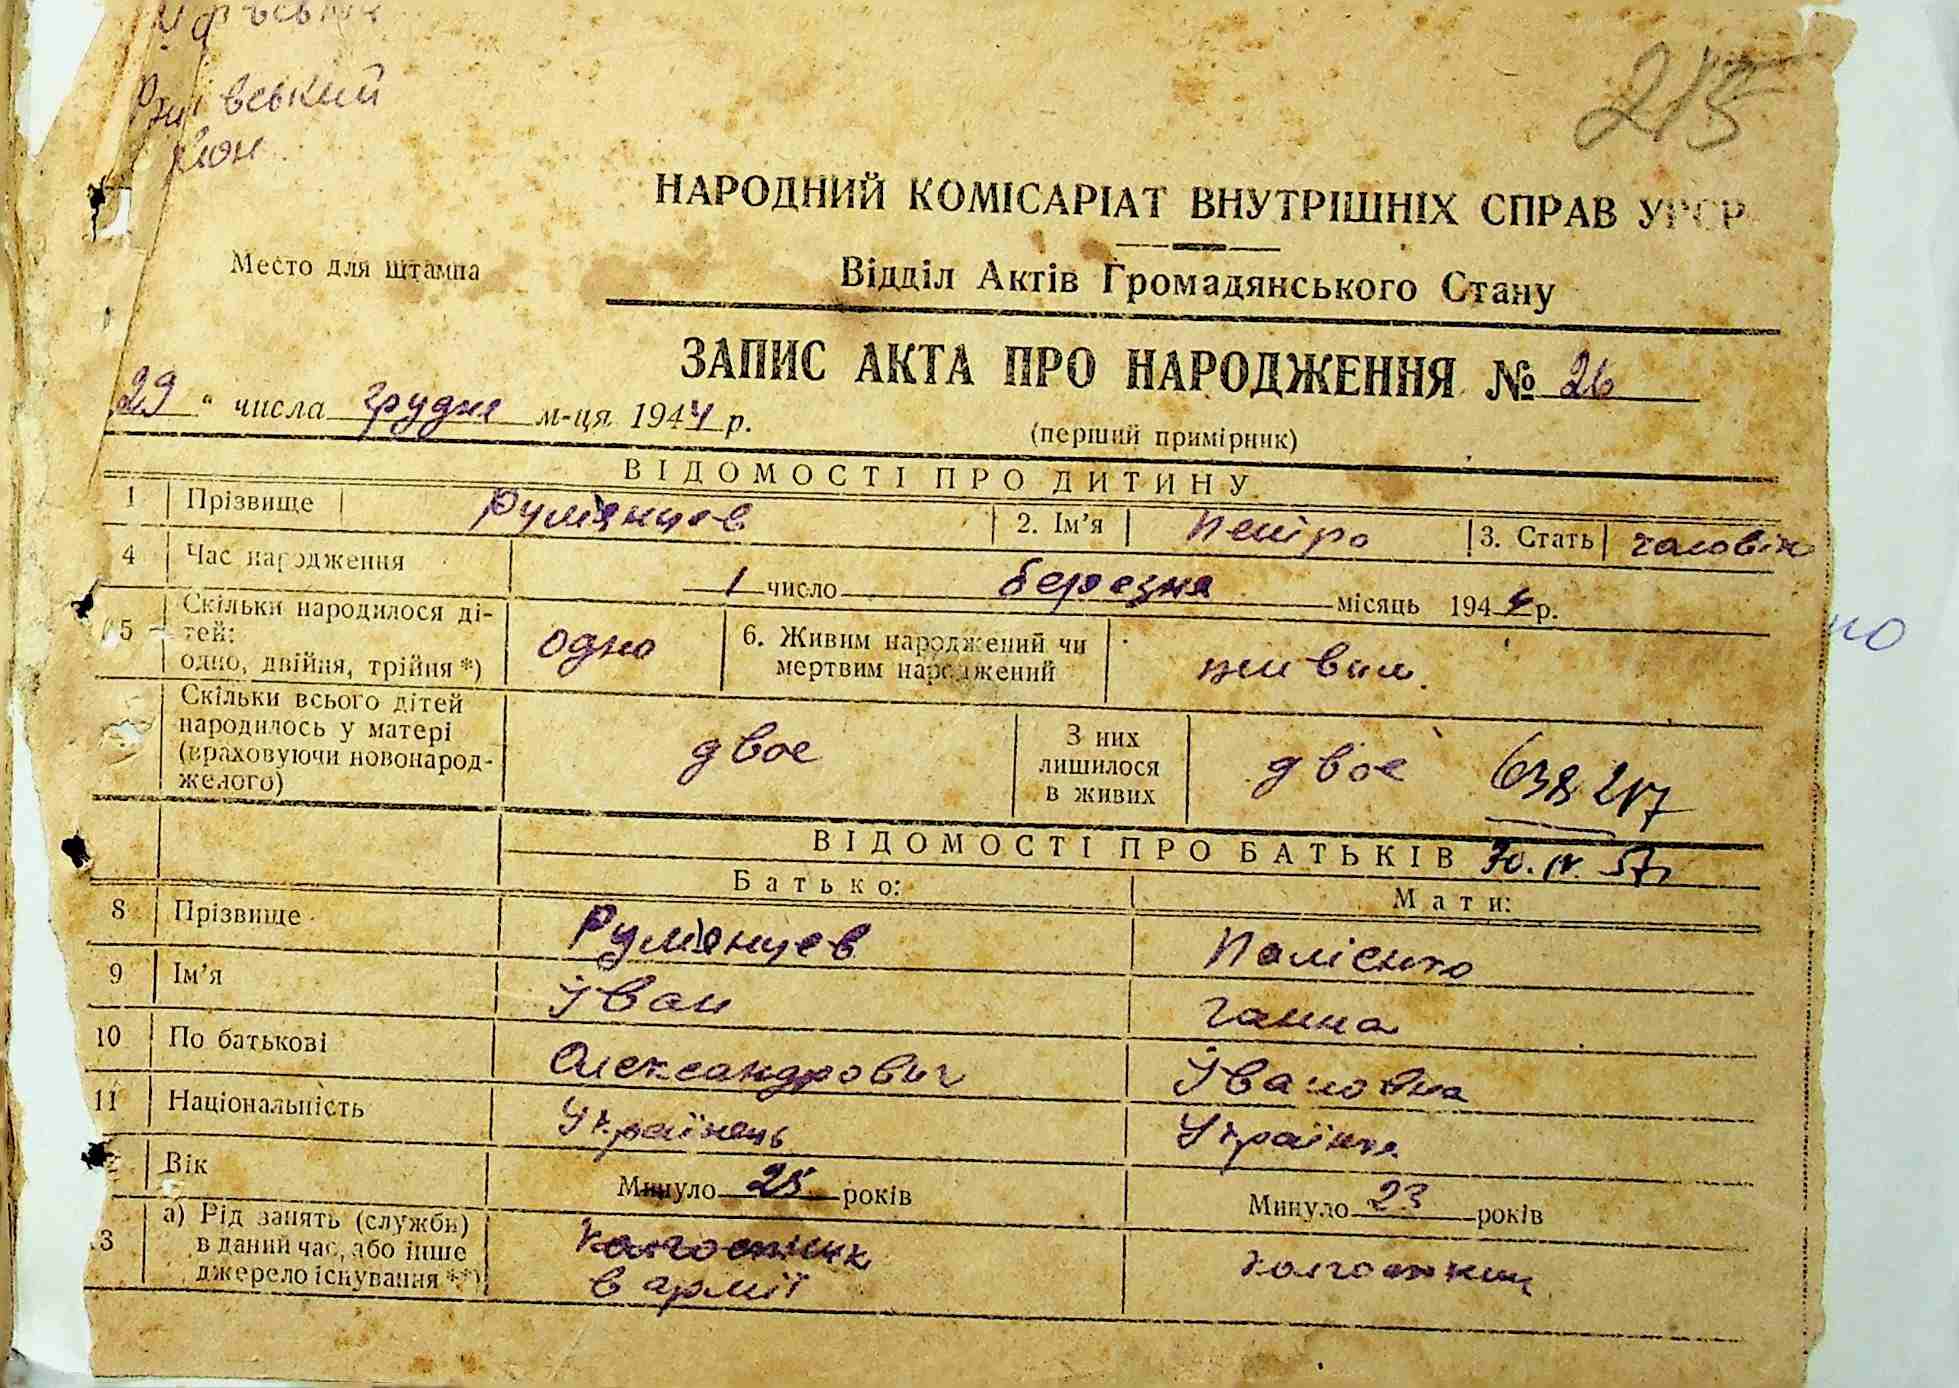 вський
215
НАРОДНИЙ КОМІСАРІАТ ВНУТРІШНІХ СПРАВ УРСР
Место для штампа
Відділ Актів Громадянського Стану
ЗАПИС АКТА ПРО НАРОДЖЕННЯ № 26
29 " числа грудня м-ця 1944 р.
(перший примірник)
ВІДОМОСТІ ПРО ДИТИНУ
1 Прізвище Рум'янцев 2. Ім'я Петро 3. Стать чоловік
4 Час народження 1 число березня місяць 1944 р.
5 Скільки народилося ді-
тей:
одно, двійня, трійня *) одно 6. Живим народжений чи
мертвим народжений живим.
Скільки всього дітей
народилось у матері
(враховуючи новонарод-
желого) двоє З них
лишилося
в живих двоє
ВІДОМОСТІ ПРО БАТЬКІВ 30.IV.57
Батько: Мати:
8 Прізвище Рум'янцев Полієнко
9 Ім'я Іван Ганна
10 По батькові Олександрович Івановна
11 Національність Українець Українка
2 Вік Минуло 25 років Минуло 23 років
3 а) Рід занять (служби)
в даний час, або інше
джерело існування **) колгоспник
в армії колгоспниц